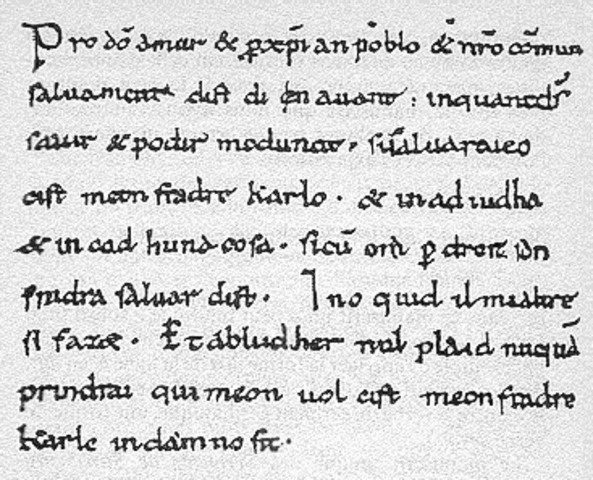 Pro dõ amur & ꝑ xp̃ian poblo & nrõ cõmun
saluament. dist di in auant. inquantds̃
sauir & podir medunat. sisaluaraieo
cist meon fradre Karlo. & in ad iudha
& in cad huna cosa. sicũ om̃ ꝑ dreit son
fradra saluar dist. Ino quid il mialtre
si fazet. Et abludher nul plaid nuquã
prindrai qui meon uol cist meon fradre
Karle in damno sit.